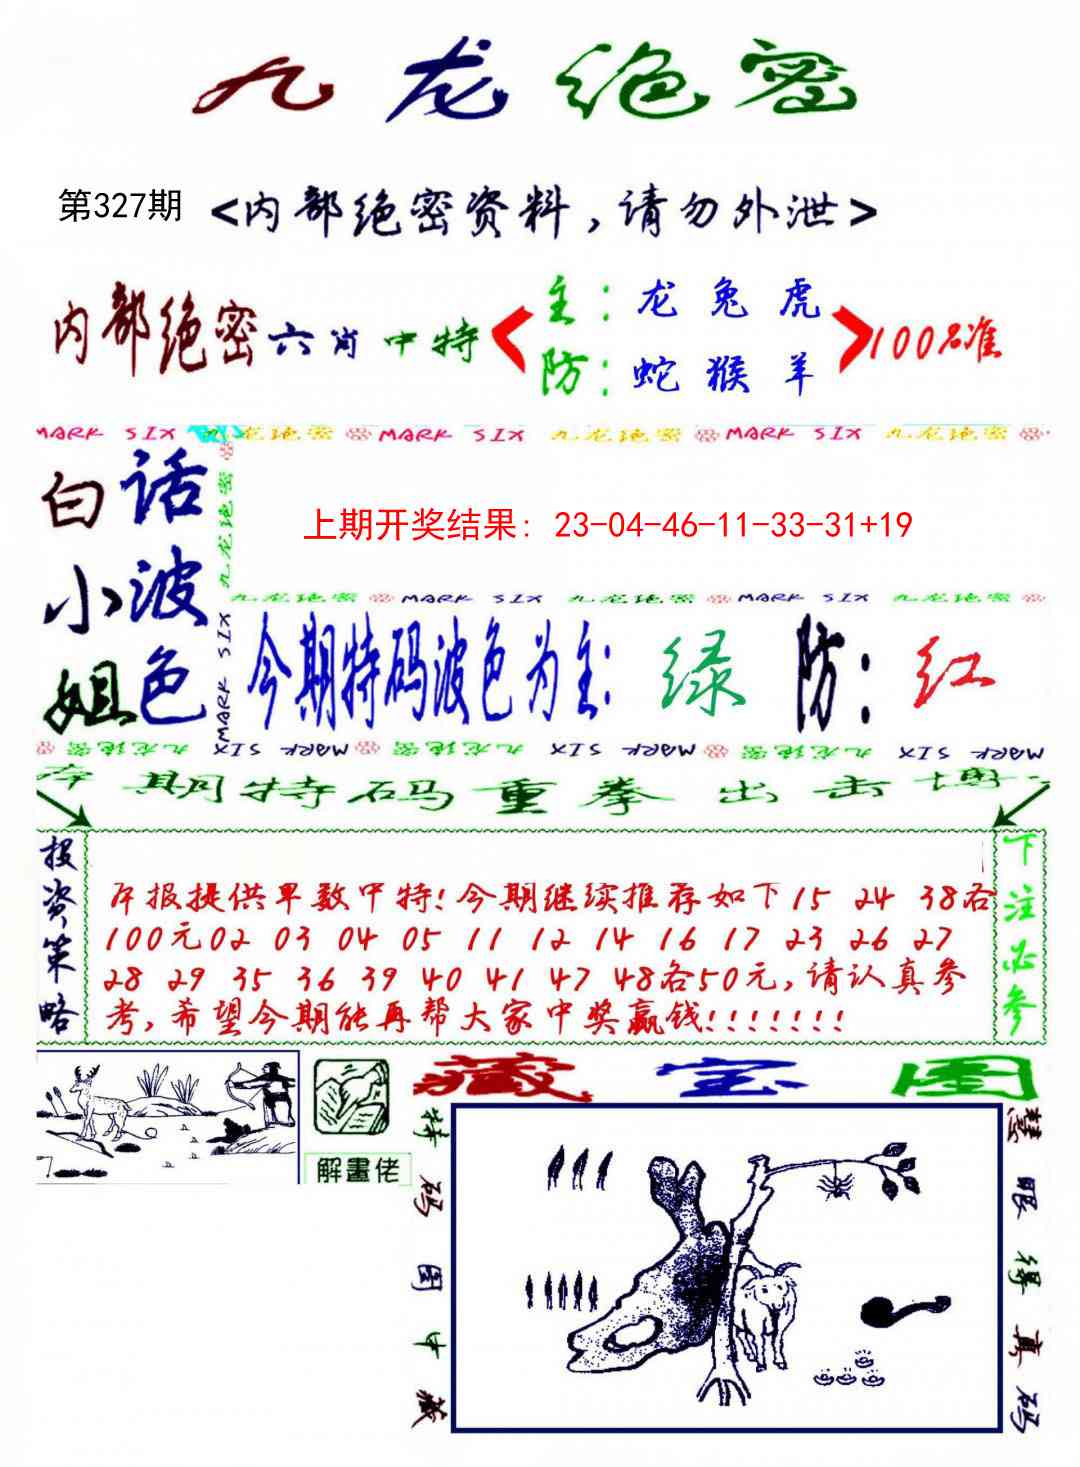 九龙绝密
第327期 <内部绝密资料，请勿外泄>
内部绝密六肖中特
主：龙 兔 虎
防：蛇 猴 羊
100%准
MARK SIX 九龙绝密 MARK SIX 九龙绝密 MARK SIX 九龙绝密
白话小波姐色
九龙绝密
MARK SIX
MARK SIX
上期开奖结果：23-04-46-11-33-31+19
九龙绝密 MARK SIX 九龙绝密 MARK SIX 九龙绝密
今期特码波色为主：绿 防：红
九龙绝密 MARK SIX 九龙绝密 MARK SIX 九龙绝密 MARK SIX
本期特码重拳出击博
投资策略
本报提供单数中特！今期继续推荐如下15 24 38各
100元02 03 04 05 11 12 14 16 17 23 26 27
28 29 35 36 39 40 41 47 48各50元，请认真参
考，希望今期能再帮大家中奖赢钱！！！！！！！
下注必参
解畫佬
藏宝图
特码图中藏
慧眼得真码